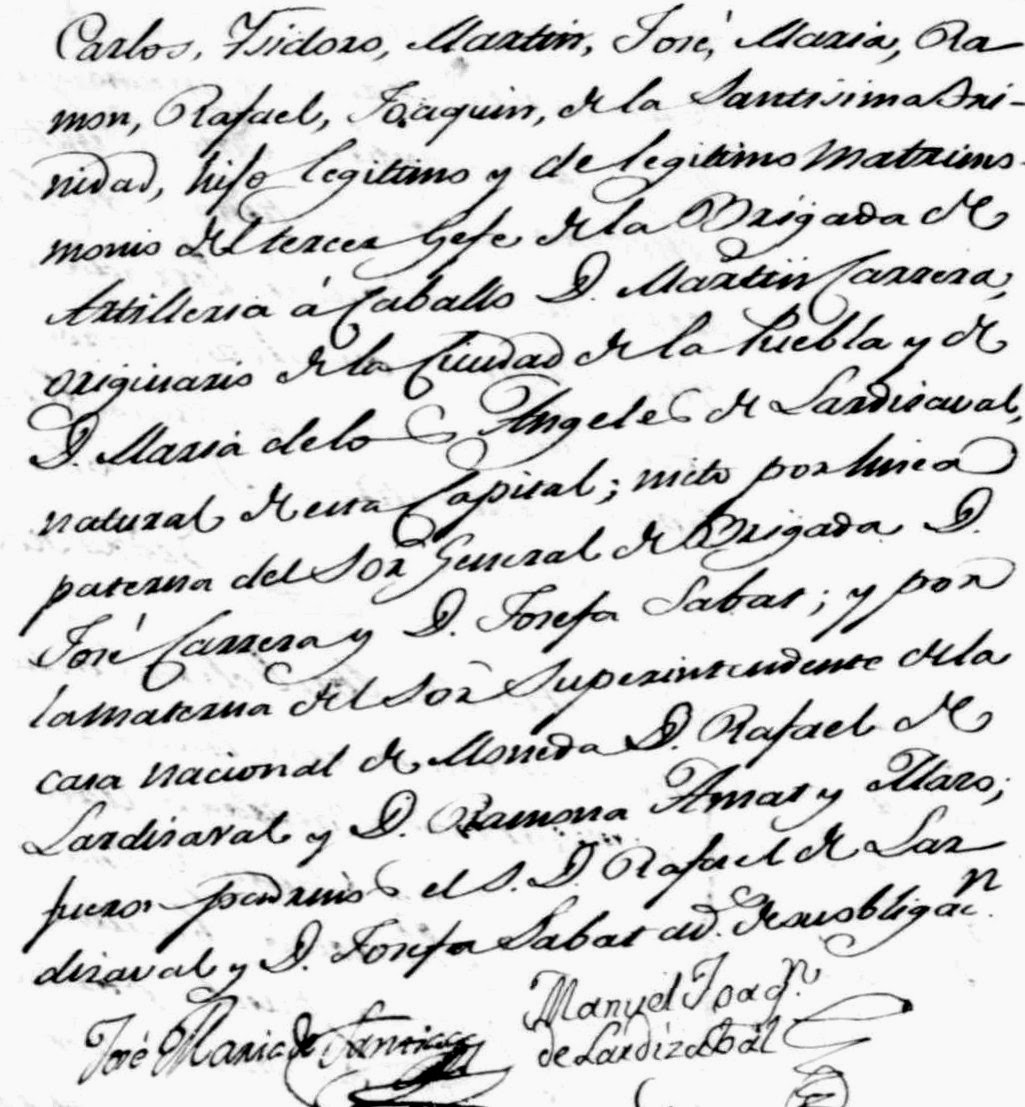 Carlos, Isidoro, Martin, José, Maria, Ra
mon, Rafael, Joaquin, de la Santisima Tri-
nidad, hijo legitimo y de legitimo Matrimo-
monio del tercer Gefe de la Brigada de
Artilleria á Caballo D. Martin Carrera,
originario de la Ciudad de la Puebla y de
D. Maria de los Angeles de Lardisaval,
natural de esta Capital; nieto por linea
paterna del Sor General de Brigada D.
José Carrera y D. Josefa Sabat; y por
la materna del Sor Superintendente de la
casa nacional de Moneda D. Rafael de
Lardisaval y D. Ramona Amat y
fueron padrinos el S. D. Rafael de Lar
disaval y D. Josefa Sabat ad. de su obligacn.
Manuel Joaqn.
José Maria de Santiago
de Lardizabal